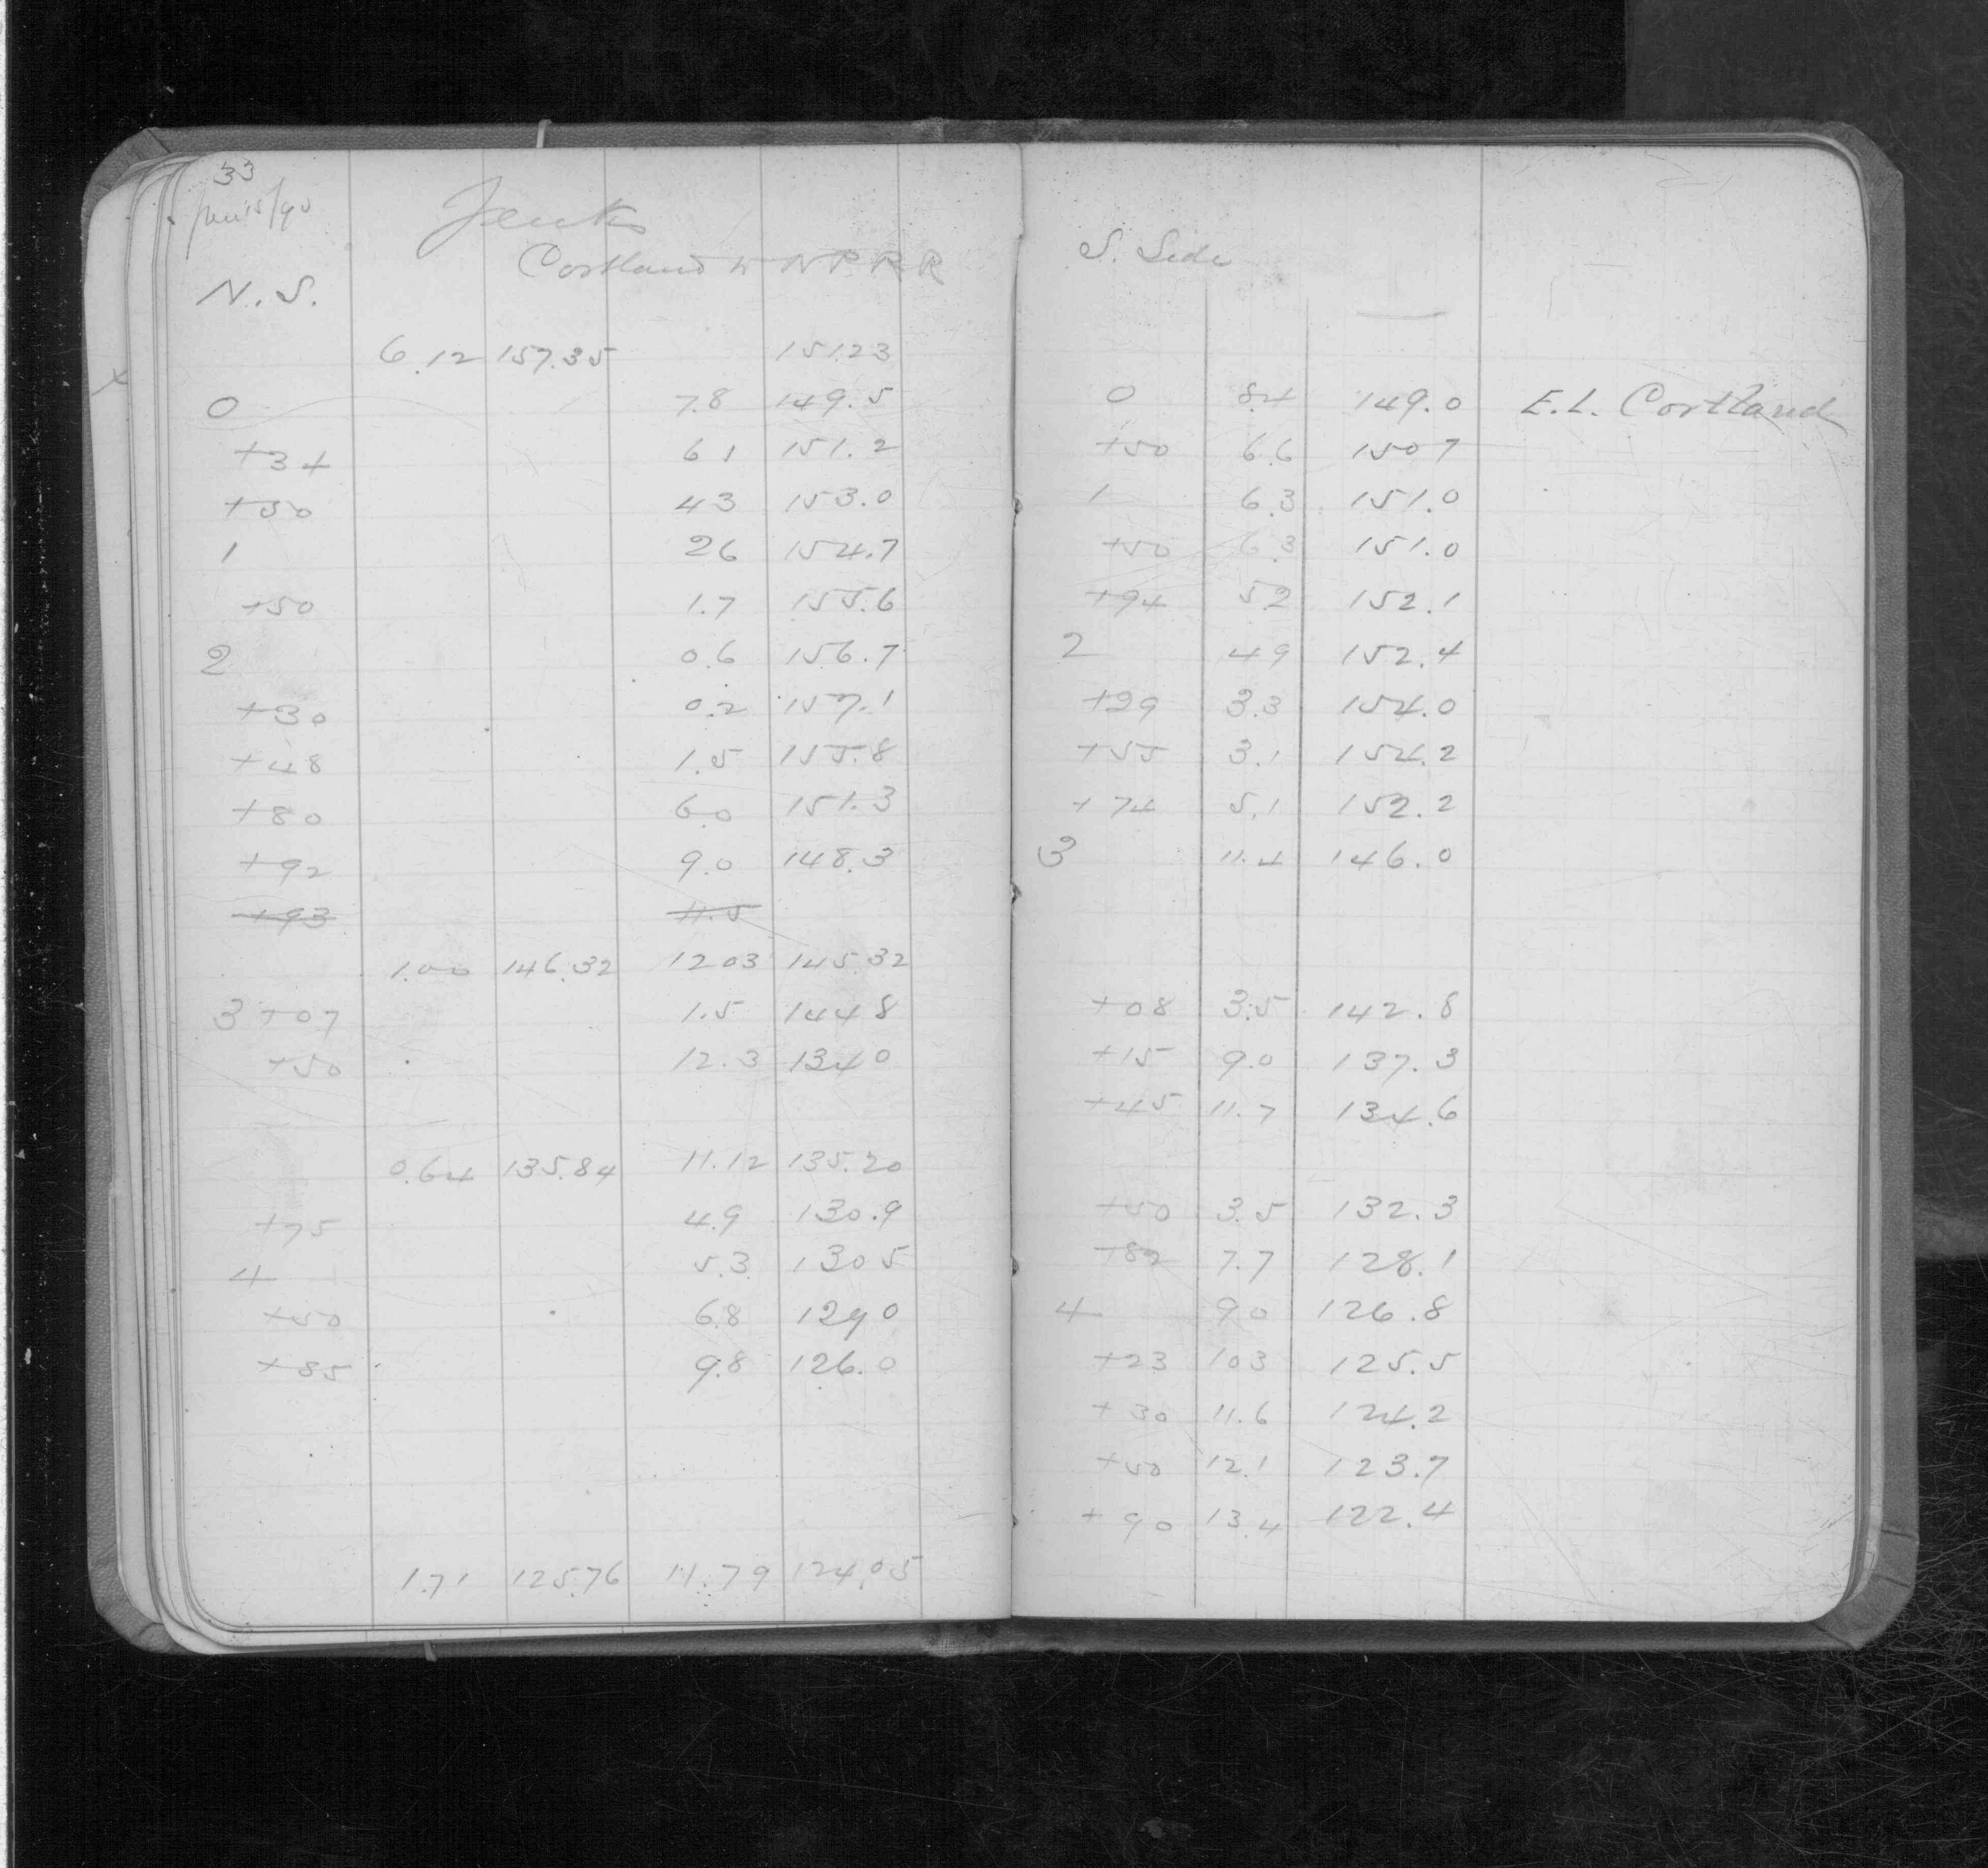 33
Jenks
Cortland to N P R R
N. S.
6.12 157.35 151.23
0 7.8 149.5
+34 6 1 151.2
+50 4 3 153.0
1 2 6 154.7
+50 1.7 155.6
2 0.6 156.7
+30 0.2 157.1
+48 1.5 155.8
+80 6.0 151.3
+92 9.0 148.3
+93 11.5
1.00 146.32 12 03 145.32
3 +07 1.5 144 8
+50 12.3 134 0
0.64 135.84 11.12 135.20
+75 4.9 130.9
4 5.3 130 5
+50 6.8 129 0
+85 9.8 126.0
1.71 125.76 11.79 124.05
S. Side
0 8.4 149.0 E.L. Cortland
+50 6.6 150 7
1 6.3 151.0
+50 6.3 151.0
+94 5.2 152.1
2 4 9 152.4
+39 3.3 154.0
+55 3.1 154.2
+74 5.1 152.2
3 11.4 146.0
+08 3.5 142.8
+15 9.0 137.3
+45 11.7 134.6
+50 3.5 132.3
+82 7.7 128.1
4 9 0 126.8
+23 10 3 125.5
+30 11.6 124.2
+50 12.1 123.7
+90 13.4 122.4